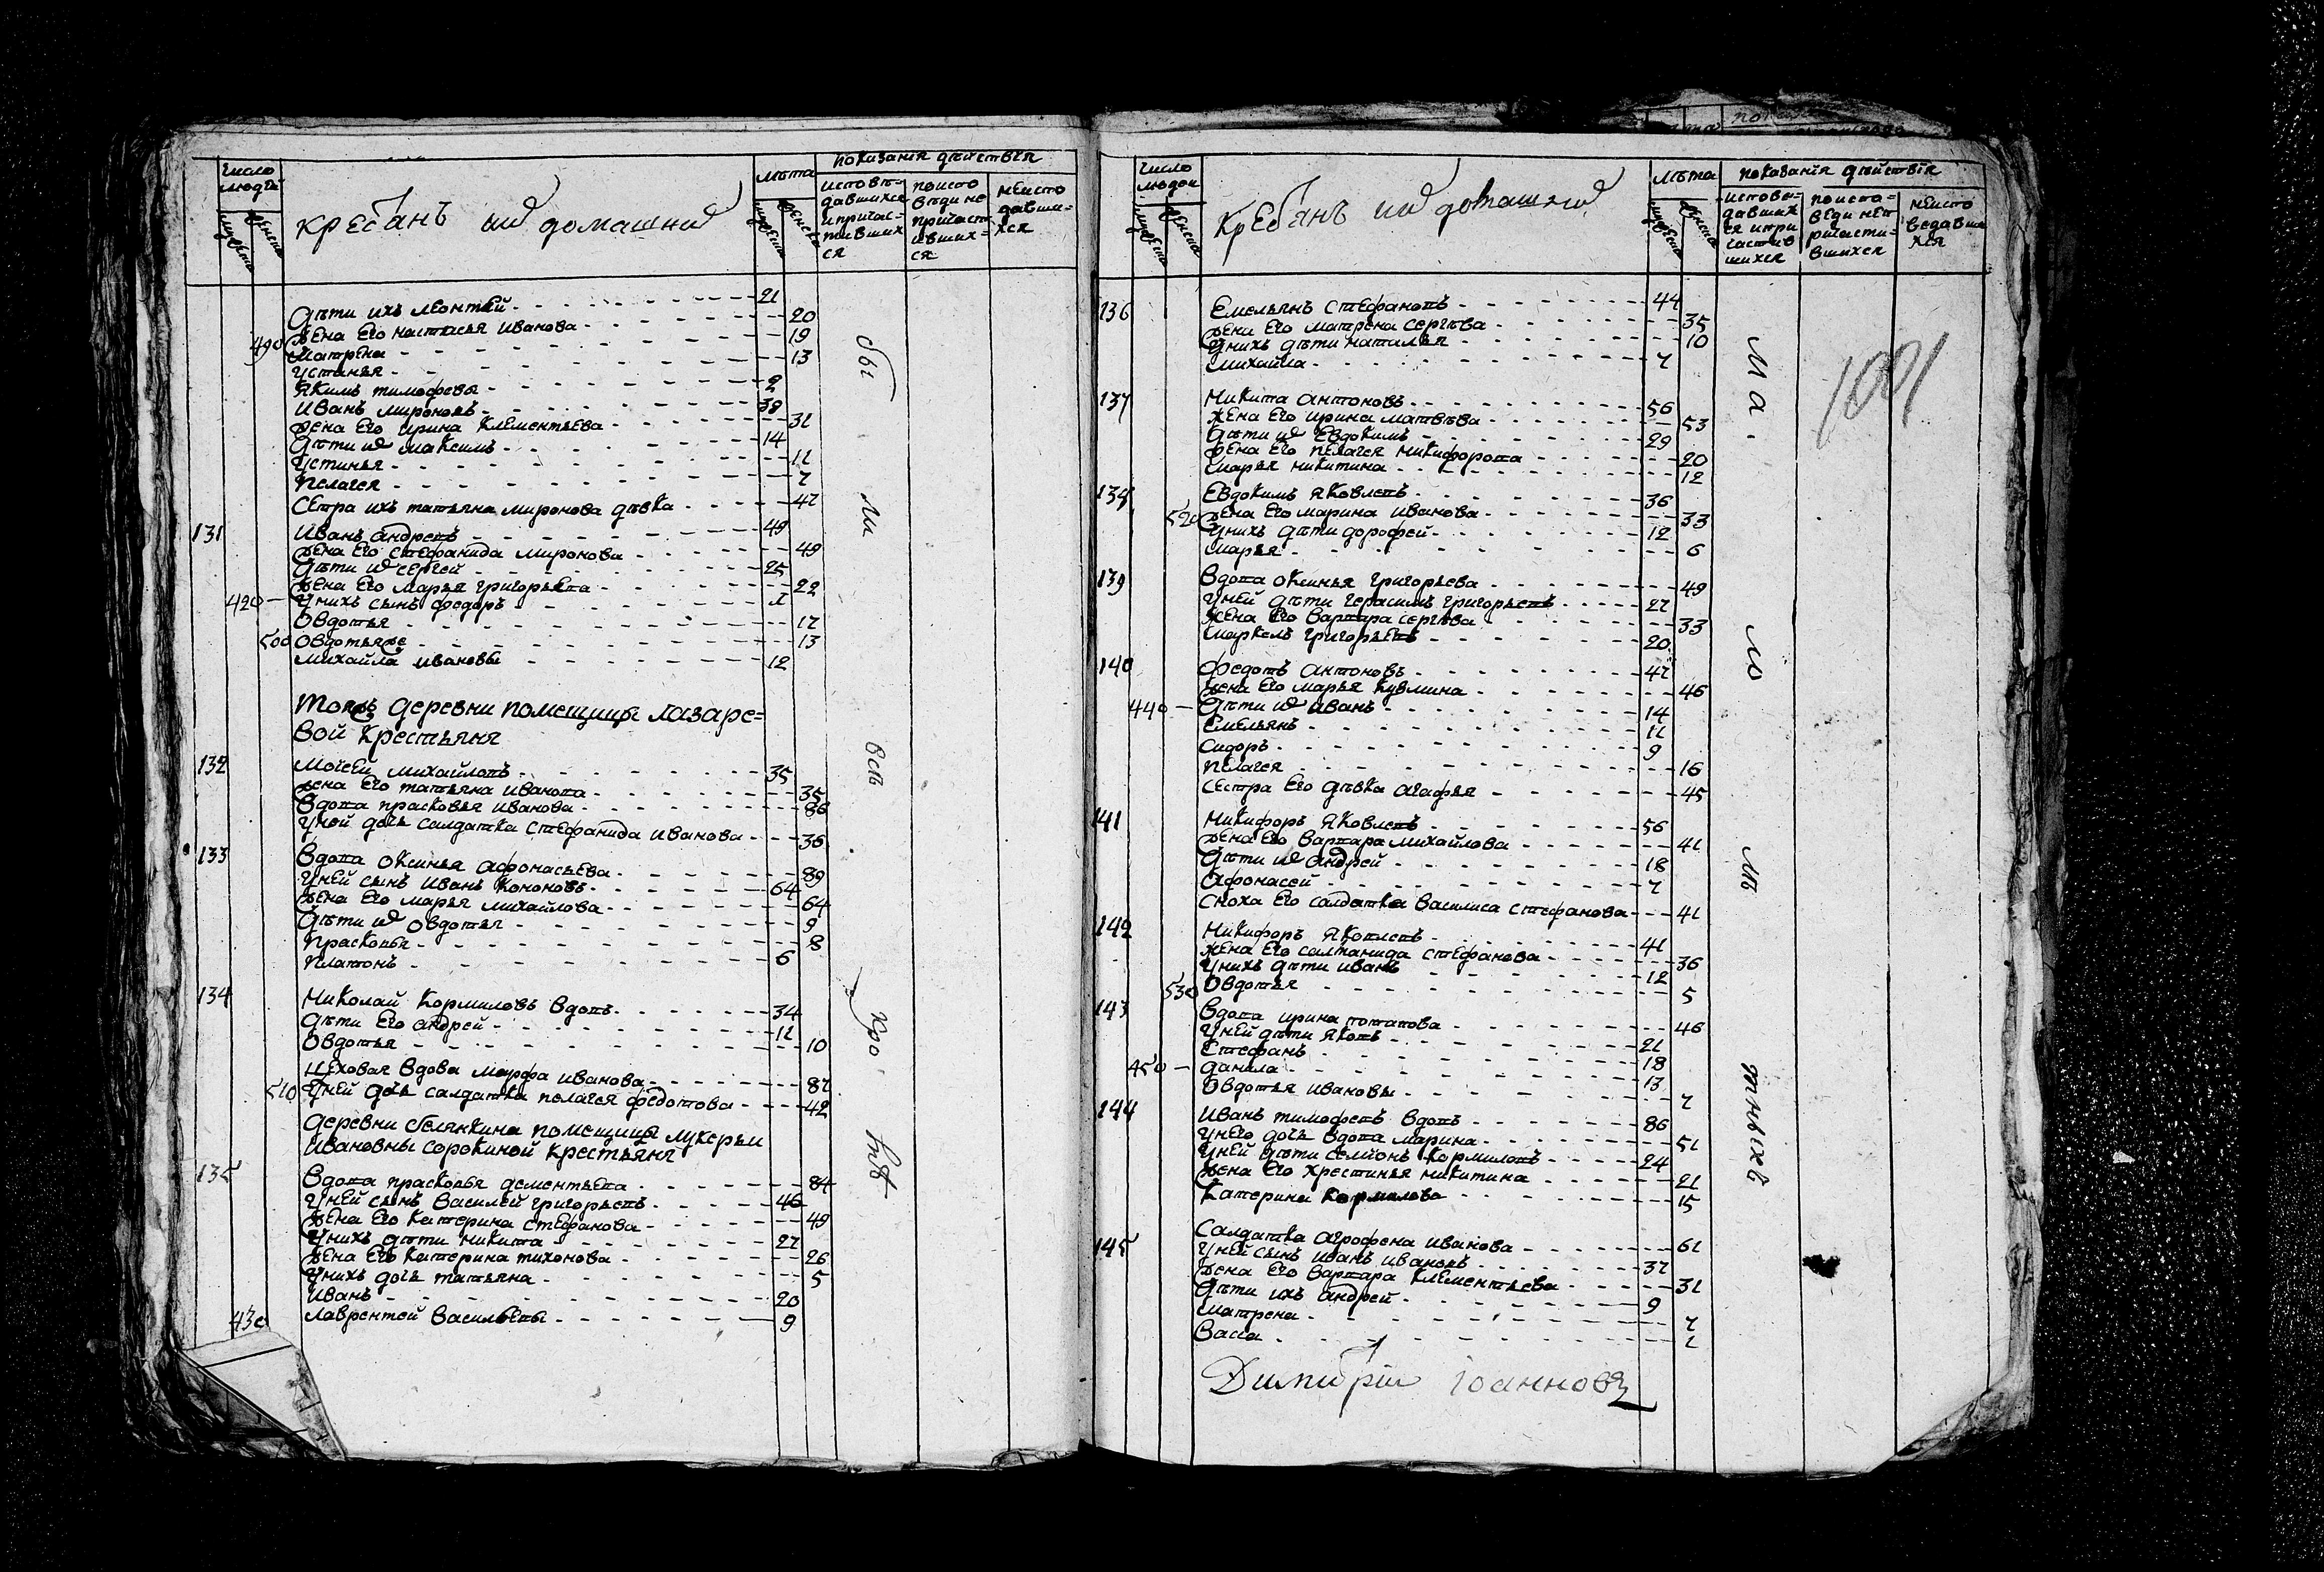 число людей
мужеска
женска
крестьянъ ихъ домашнихъ
лѣта
мужеска
женска
показанія дѣйствія
исповѣдавшихся и причастившихся
по исповѣди не причастившихся
не исповедавшихся
дѣти ихъ леонтей 21
жена Его настасья иванова 20
490 Матрена 19
устинья 13
якимъ тимофеевы 2
иванъ мироновъ 38
жена Его ирина клементьева 31
дѣти ихъ максимъ 14
устинья 11
пелагея 7
сестра ихъ татьяна миронова дѣвка 47
131 иванъ андреевъ 49
жена Его стефанида миронова 49
дѣти ихъ сергей 25
жена Его марья григорьева 22
420 у нихъ сынъ федоръ 1
овдотья 17
500 овдотья же 13
михайла ивановы 12
тояжъ деревни помещицы лазаре=
вой крестьяня
132 моисей михайловъ 35
жена Его татьяна иванова 35
вдова прасковья иванова 86
у ней дочь салдатка стефанида иванова 36
133 вдова оксинья афонасьева 89
у ней сынъ иванъ кононовъ 64
жена Его марья михайлова 64
дѣти ихъ овдотья 9
прасковья 8
платонъ 6
134 Николай кормиловъ вдовъ 34
дѣти Его андрей 11
овдотья 10
цеховая вдова марфа иванова 87
510 у ней дочь салдатка пелагея федотова 42
деревни белянкина помещицы лукерьи
ивановны сорокиной крестьяня
135 вдова прасковья дементьева 84
у ней сынъ василей григорьевъ 46
жена Его катерина стефанова 49
у нихъ дѣти никита 27
жена Его катерина тихонова 26
у нихъ дочь татьяна 5
иванъ 20
430 лаврентей васильевы 9
бы
ли
всѣ
кро
мѣ
число людей
мужеска
женска
крестьянъ ихъ домашнихъ
лѣта
мужеска
женска
показанія дѣйствія
исповедавшихся и причастившихся
по исповеди не причастившихся
не исповедавшихся
136 Емельянъ стефановъ 44
жена Его матрена сергѣева 35
у нихъ дѣти наталья 10
михайла 7
137 Никита антоновъ 56
жена Его ирина матвѣева 53
дѣти ихъ Евдокимъ 29
жена Его пелагея никифорова 20
марья никитина 12
138 Евдокимъ яковлевъ 36
520 жена Его марина иванова 33
у нихъ дѣти дорофей 12
марья 6
139 вдова оксинья григорьева 49
у ней дѣти герасимъ григорьевъ 27
жена Его варвара сергѣева 33
маркелъ григорьевъ 20
140 федотъ антоновъ 47
жена Его марья кузмина 46
440 дѣти ихъ иванъ 14
Емельянъ 11
сидоръ 9
пелагея 16
сестра Его дѣвка агафья 45
141 Никифоръ яковлевъ 56
жена Его варвара михайлова 41
дѣти ихъ андрей 18
афонасей 7
сноха Его салдатка василиса стефанова 41
142 Никифоръ яковлевъ 41
жена Его саломанида стефанова 36
у нихъ дѣти иванъ 12
530 овдотья 5
143 вдова ирина потапова 46
у ней дѣти яковъ 21
стефанъ 18
450 данила 13
овдотья ивановы 7
144 иванъ тимофеевъ вдовъ 86
у него дочь вдова марина 51
у ней дѣти семионъ кормиловъ 24
жена Его хрестинья никитина 21
катерина кормилова 15
145 салдатка агрофена иванова 61
у ней сынъ иванъ ивановъ 37
жена Его варвара клементьева 31
дѣти ихъ андрей 9
матрена 7
васса 1
ма
ло
лѣ
тныхъ
1001
Димитрiй Iоанновъ